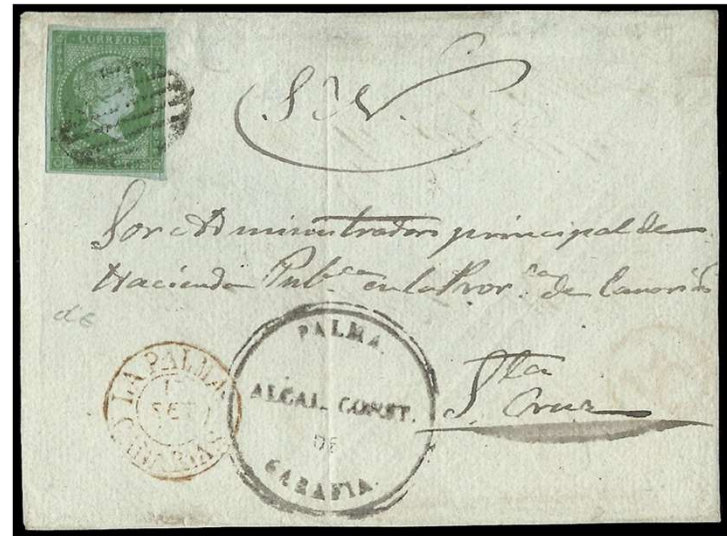 CORREOS
S. N.
Sor Administrador principal de
Hacienda Pub.ca en la Prov.cia de Canarias
LA PALMA
SET
CANARIAS
PALMA
ALCAL. CONST.
DE
GARAFIA.
Sta
Cruz